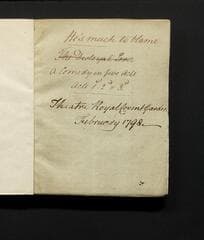 He's much to blame
A Comedy in five Acts
Acts 1st 2d & 3d
Theatre Royal Covent Garden
February 1798.